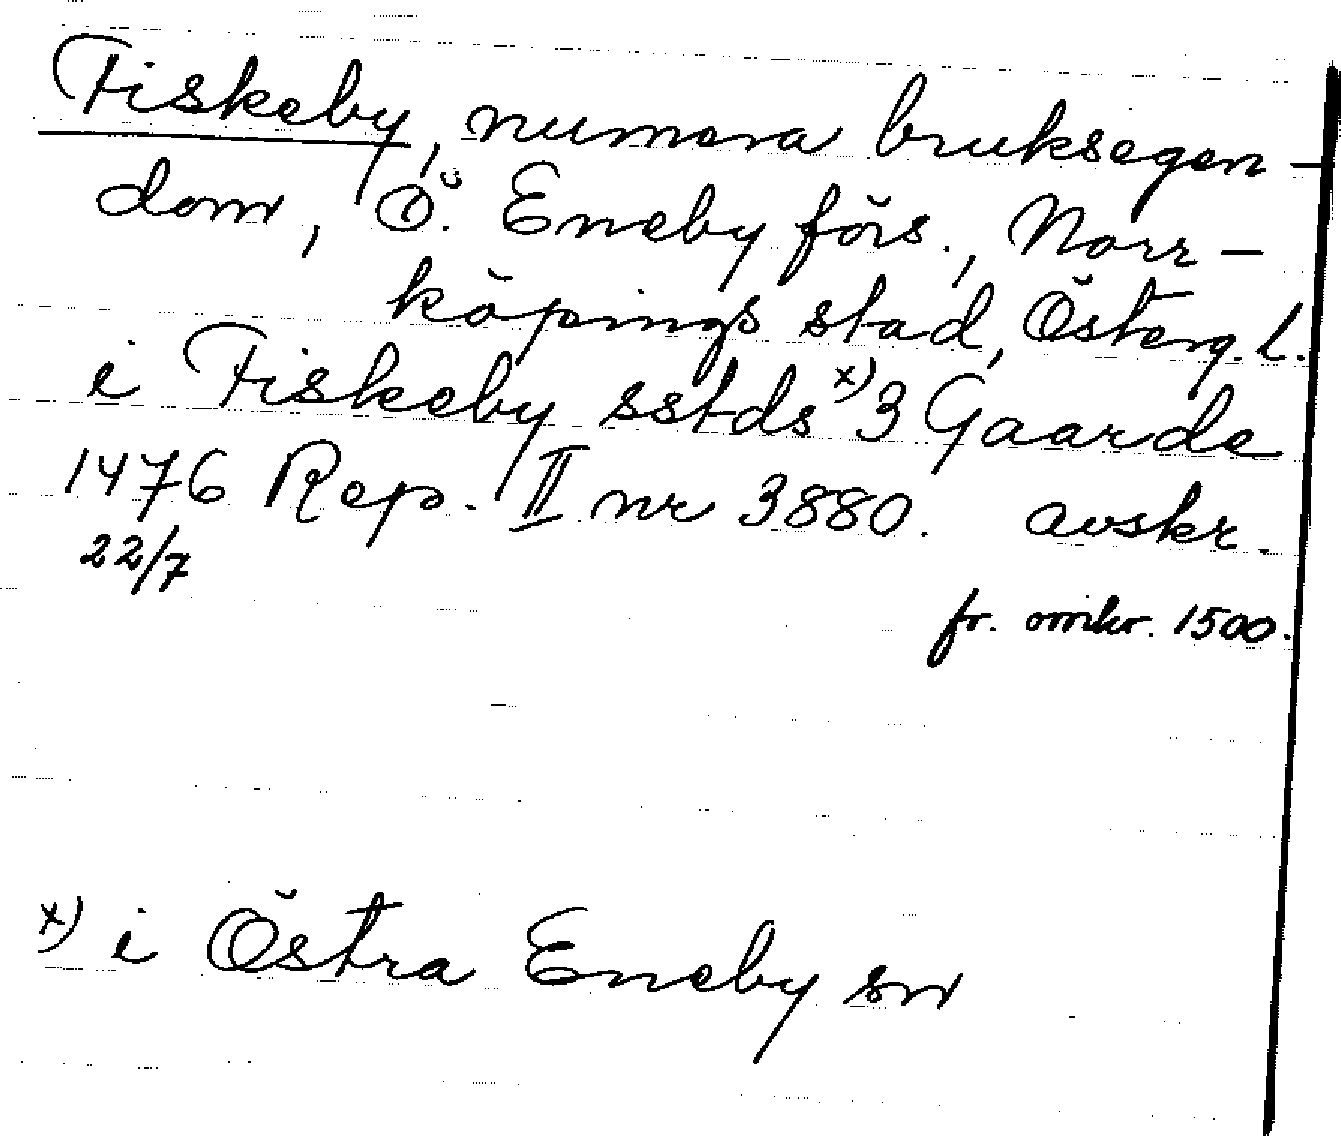 Fiskeby, numera bruksegen-
dom, Ö. Eneby förs., Norr-
köpings stad, Österg. l.
i Fiskeby sstds x) 3 Gaarde
1476 Rep. II nr 3880. avskr.
22/7
fr. omkr. 1500.
x) i Östra Eneby sn